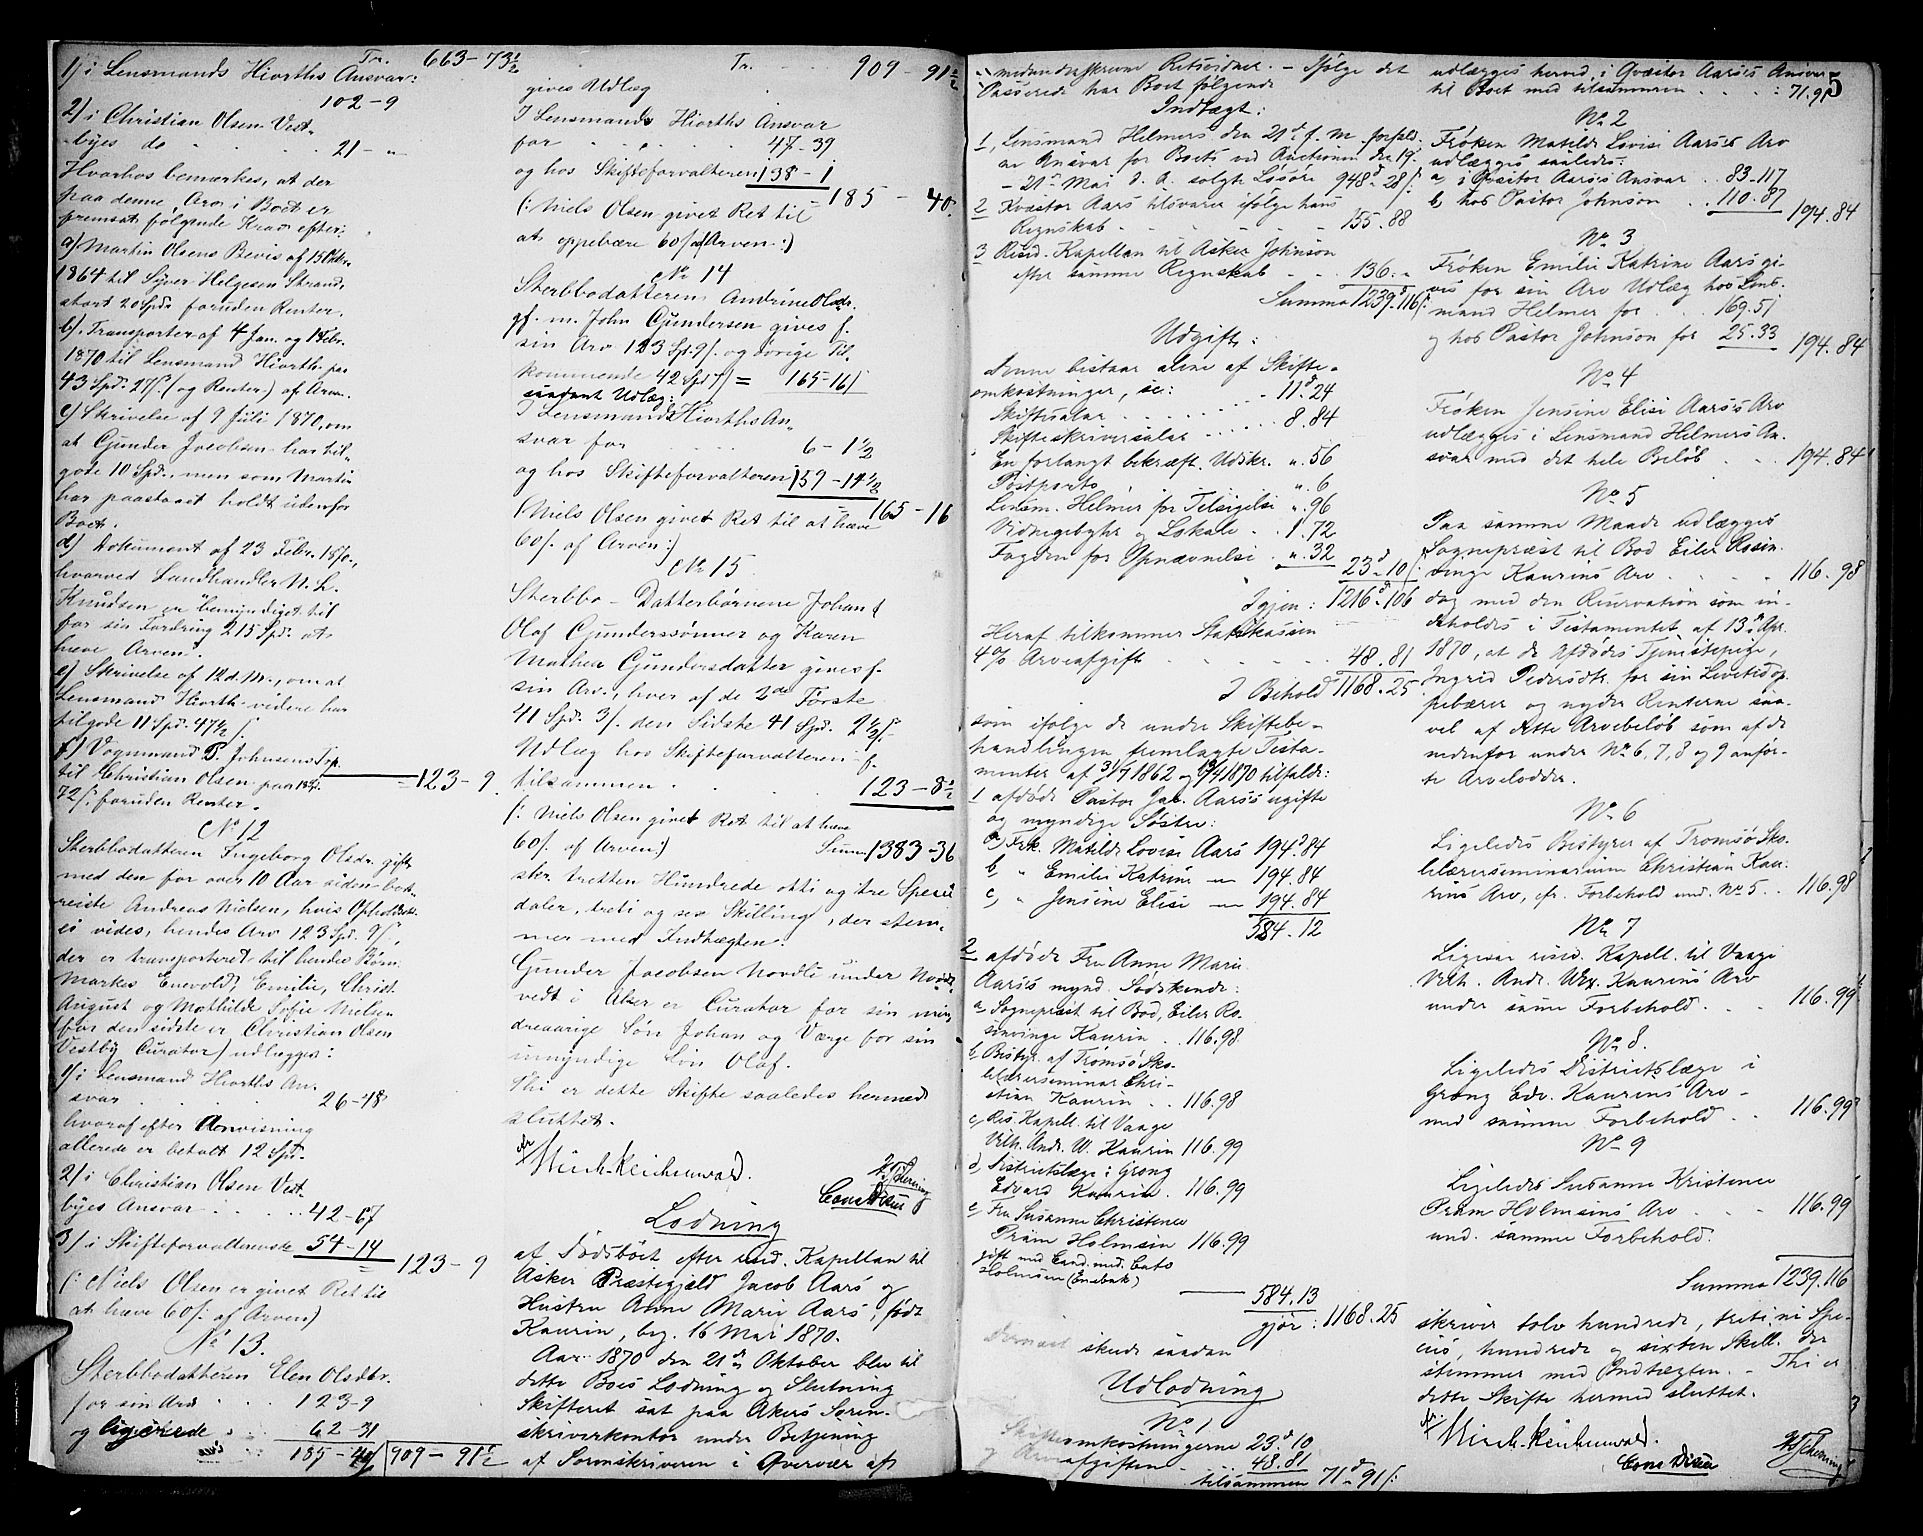 Tr. 663-73½
1) i Lensmands Hiorths Ansvar:
102-9
2) i Christian Olsen Vest-
byes do 21-"
Hvorhos bemærkes, at der
paa denne Arv i Boet er
fremsat følgende Krav efter:
a) Martin Olsens Bevis af 15 Oktbr.
1864 til Syver Helgesen Strand,
stort 20 Spd. foruden Renter.
b) Transporter af 4 Jan. og 1 Febr.
1870 til Lensmand Hiorth paa
43 Spd. 27 s (og Renter) af Arven.
c) Skrivelse af 9 Juli 1870, om
at Gunder Jacobsen har til-
gode 10 Spd., men som Martin
har paastaaet holdt udenfor
Boet.
d) Dokument af 23 Febr. 1870,
hvorved Landhandler N. L.
Knudsen er bemyndiget til
for sin Fordring 215 Spd. at
hæve Arven.
e) Skrivelse af 12 d. M., om at
Lensmand Hiorth videre har
tilgode 11 Spd. 47½ s.
f) Vognmand P. Johnsens Trp.
til Christian Olsen paa 13 Spd.
72 s. foruden Renter.
= 123-9.
No 12
Sterbbodatteren Ingeborg Olsdr. gift
med den for over 10 Aar siden bort-
reiste Andreas Nielsen, hvis Opholdssted
ei vides, hendes Arv 123 Spd. 9 s,
der er transporteret til hendes Børn
Markes Enevold, Emilie, Christ.
August og Mathilde Sofie Nielsen
(for den sidste er Christian Olsen
Vestby Curator) udlægges:
1) i Lensmand Hiorths An-
svar 26-48
hvoraf efter Anvisning
allerede er betalt 12 Spd.
2) i Christian Olsen Vest-
byes Ansvar 42-67
3) i Skifteforvalterens 54-14
= 123-9
(: Niels Olsen er givet Ret til
at hæve 60 s. af Arven)
No 13.
Sterbbodatteren Elen Olsdtr.
for sin Arv 123-9
og ligerede 62-31
185-40 909-91½
Tr. 909-91½
gives Udlæg
I Lensmands Hiorths Ansvar
for 47-39
og hos Skifteforvalteren 138-1
185-40.
(: Niels Olsen givet Ret til
at oppebære 60 s. af Arven :)
No 14
Sterbbodatteren Andrine Olsdr.
gf. m. John Gundersen gives f.
sin Arv 123 Spd. 9 s. og øvrige Til-
kommende 42 Spd 7 s = 165-16 s
saadant Udlæg:
I Lensmands Hiorths An-
svar for 6-1½
og hos Skifteforvalteren 159-14½
= 165-16
(Niels Olsen givet Ret til at hæve
60 s. af Arven :)
No 15
Sterbbo-Datterbørnene Johan &
Olaf Gunderssønner og Karen
Mathea Gundersdatter gives f.
sin Arv, hver af de 2de Første
41 Spd. 3 s. den Sidste 41 Spd. 2½ s.
Udlæg hos Skifteforvalteren f.
tilsammen 123-8½
(: Niels Olsen givet Ret til at hæve
60 s. af Arven :) Summa 1383-36
skr. tretten Hundrede otti og tre Specie
daler, treti og sex Skilling, der stem-
mer med Indtægten.
Gunder Jacobsen Nordli under Nord-
vedt i Aker er Curator for sin min-
dreaarige Søn Johan og Værge for sin
umyndige Søn Olaf.
Thi er dette Skifte saaledes hermed
sluttet.
Hirsch Reichenwald.
Lodning
af Dødsboet efter resid. Kapellan til
Asker Præstegjeld Jacob Aars og
Hustru Anne Marie Aars, født
Kaurin, beg. 16 Mai 1870.
Aar 1870 den 21de Oktober blev til
dette Boes Lodning og Slutning
Skifteret sat paa Akers Soren-
skriverkontor under Betjening
af Sorenskriveren i Overvær af
5
medunderskrevne Retsvidner. - Ifølge det
Passerede har Boet følgende
Indtægt:
1, Lensmand Helmers den 21de f. M. forfald.
er Ansvar for Boets ved Auctionen den 19-
- 21de Mai d. A. solgte Løsøre 948d 28 s.
2 Kvæstor Aars tilsvarer ifølge hans
Regnskab 155.88
3 Resid. Kapellan til Asker Johnson
efter samme Regnskab 136."
Summa 1239d.116 s.
Udgift:
Denne bestaar alene af Skifte-
omkostninger, se:
Skiftesalar 11d.24
Skifteskriversalar 8.84
En forlangt bekræft. Udskr. ".56
Postporto ".6
Lensm. Helmer for Tilsigelse ".96
Vidnegebyhr & Lokale 1.72
Fogden for Opnævnelse ".32
23d.10 s.
Igjen: 1216d.106
Heraf tilkommer Statskassen
4% Arveafgift 48.81
I Behold 1168.25
som ifølge de under Skiftebe-
handlingen fremlagte Testa-
menter af 31/7 1862 og 13/4 1870 tilfalde:
1 afdøde Pastor Jac. Aars's ugifte
og myndige Søstre:
a, Frk. Matilde Lovise Aars 194d.84
b " Emilie Katrine — 194.84
c, " Jensine Elise — 194.84
584.12
2 afdøde Fru Anne Marie
Aars's mynd. Sødskende:
a, Sognepræst til Bod, Eiler Ro-
senvinge Kaurin 116.98
b, Bestyr. af Tromsø Sko-
lelærerseminar Chri-
stian Kaurin 116.98
c, Res. Kapell. til Vaage
Vilh. Andr. W. Kaurin 116.99
d, Distriktslæge i Grong
Edvard Kaurin 116.99
e, Fru Susanne Christence
Pram Holmsen 116.99
gift med Cand. med. Cato
Holmsen (Enebak)
584.13
gjør: 1168.25
Dermed skede saadan
Udlodning
No 1
Skifteomkostningerne 23d.10
og Arveafgiften 48.81
tilsammen 71d.91 s.
udlægges herved i Qvæstor Aars's Ansvar
til Boet med tilsammen 71.91
No 2
Frøken Matilde Lovise Aars's Arv
udlægges saaledes:
a, i Qvæstor Aars's Ansvar 83.117
b, hos Pastor Johnson 110.87
194.84
No 3
Frøken Emilie Katrine Aars gi-
ves for sin Arv Udlæg hos Lens-
mand Helmer for 169.51
og hos Pastor Johnson for 25.33
194.84
No 4
Frøken Jensine Elise Aars's Arv
udlægges i Lensmand Helmers An-
svar med det hele Beløb 194.84
No 5
Paa samme Maade udlægges
Sognepræst til Bod Eiler Rosen-
vinge Kaurins Arv 116.98
dog med den Reservation som in-
deholdes i Testamentet af 13de Apr.
1870, at de Afdødes Tjenestepige,
Ingrid Pedersdtr. for sin Levetid op-
pebærer og nyder Renterne saa-
vel af dette Arvebeløb som af de
nedenfor under No 6, 7, 8 og 9 anfør-
te Arvelodder.
No 6
Ligeledes Bestyrer af Tromsø Sko-
lelærerseminarium Christian Kau-
rins Arv, efr. Forbehold und. No 5. 116.98
No 7
Ligesaa resid. Kapell. til Vaage
Vilh. Andr. Wex. Kaurins Arv
under samme Forbehold 116.99
No 8.
Ligeledes Districtslæge i
Grong Edv. Kaurins Arv
med samme Forbehold 116.99
No 9
Ligeledes Susanne Kristence
Pram Holmsens Arv 116.99
und. samme Forbehold.
Summa 1239.116
skriver tolv hundrede, treti, ni Spe-
cies, hundrede og sixten Skell. der
stemmer med Indtægten. - Thi er
dette Skifte hermed sluttet.
Hirsch Reichenwald.